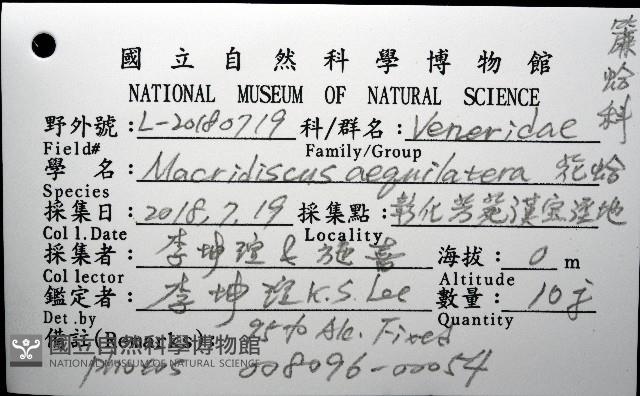 簾蛤科
國立自然科學博物館
NATIONAL MUSEUM OF NATURAL SCIENCE
野外號：L-20180719 科/群名：Veneridae
Field# Family/Group
學 名：Macridiscus aequilatera 花蛤
Species
採集日：2018,7,19 採集點：彰化芳苑漢宝溼地
Coll.Date Locality
採集者：李坤瑄 & 施善 海拔：0 m
Collector Altitude
鑑定者：李坤瑄 K.S. Lee 數量：10
Det.by Quantity
備註(Remarks)： 95% Alc. Fixed
國立自然科學博物館
NATIONAL MUSEUM OF NATURAL SCIENCE
photos 008096-00054